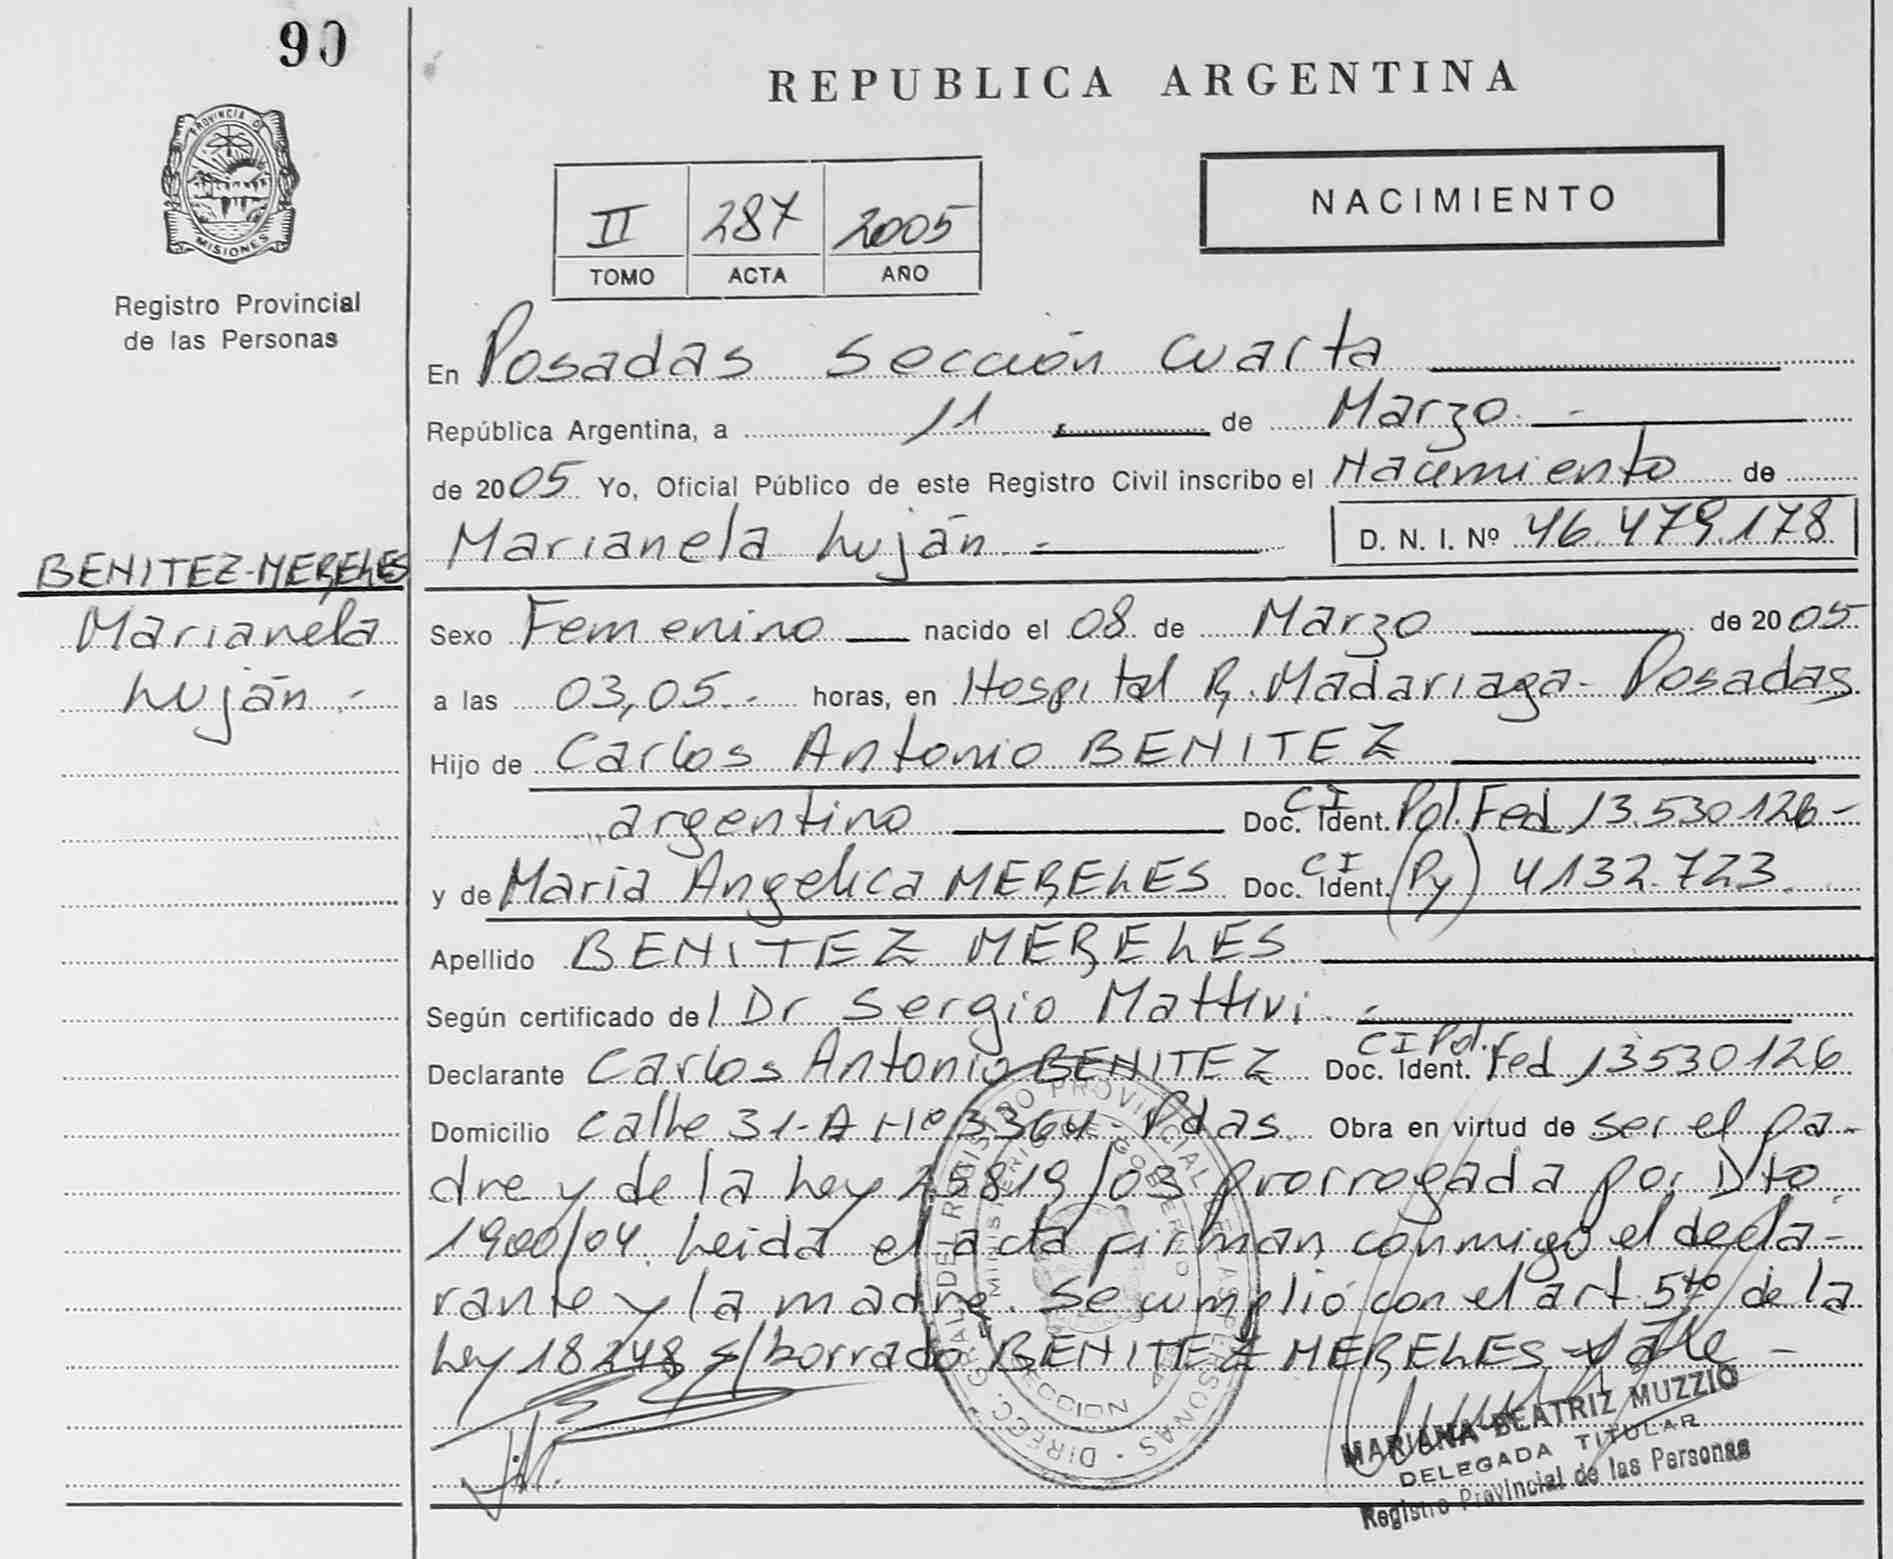 90
PROVINCIA DE
MISIONES
Registro Provincial
de las Personas
BENITEZ-MERELES
Marianela
Luján.-
REPUBLICA ARGENTINA
II 287 2005
TOMO ACTA AÑO
NACIMIENTO
En Posadas Sección Cuarta
República Argentina, a 11 de Marzo.-
de 2005 Yo, Oficial Público de este Registro Civil inscribo el Nacimiento de
Marianela Luján.- D. N. I. Nº 46.479.178
Sexo Femenino nacido el 08 de Marzo de 2005
a las 03,05.- horas, en Hospital R. Madariaga- Posadas
Hijo de Carlos Antonio BENITEZ
argentino Doc. Ident. CI Pol. Fed 13.530126-
y de Maria Angelica MERELES Doc. Ident. CI (Py) 4132.723
Apellido BENITEZ MERELES
Según certificado del Dr Sergio Mattivi.-
Declarante Carlos Antonio BENITEZ Doc. Ident. CI Pol. Fed 13530126
Domicilio Calle 31-A Nº 3364- Pdas. Obra en virtud de ser el pa-
dre y de la Ley 25819/03 prorrogada por Dto
1900/04. Leida el acta firman conmigo el decla-
rante y la madre. Se cumplió con el art 5to de la
Ley 18248 s/borrado BENITEZ MERELES Vale -
DIREC. GRAL. DEL REGISTRO PROVINCIAL DE LAS PERSONAS
MINISTERIO DE GOBIERNO
SECCION 4
MARIANA BEATRIZ MUZZIO
DELEGADA TITULAR
Registro Provincial de las Personas